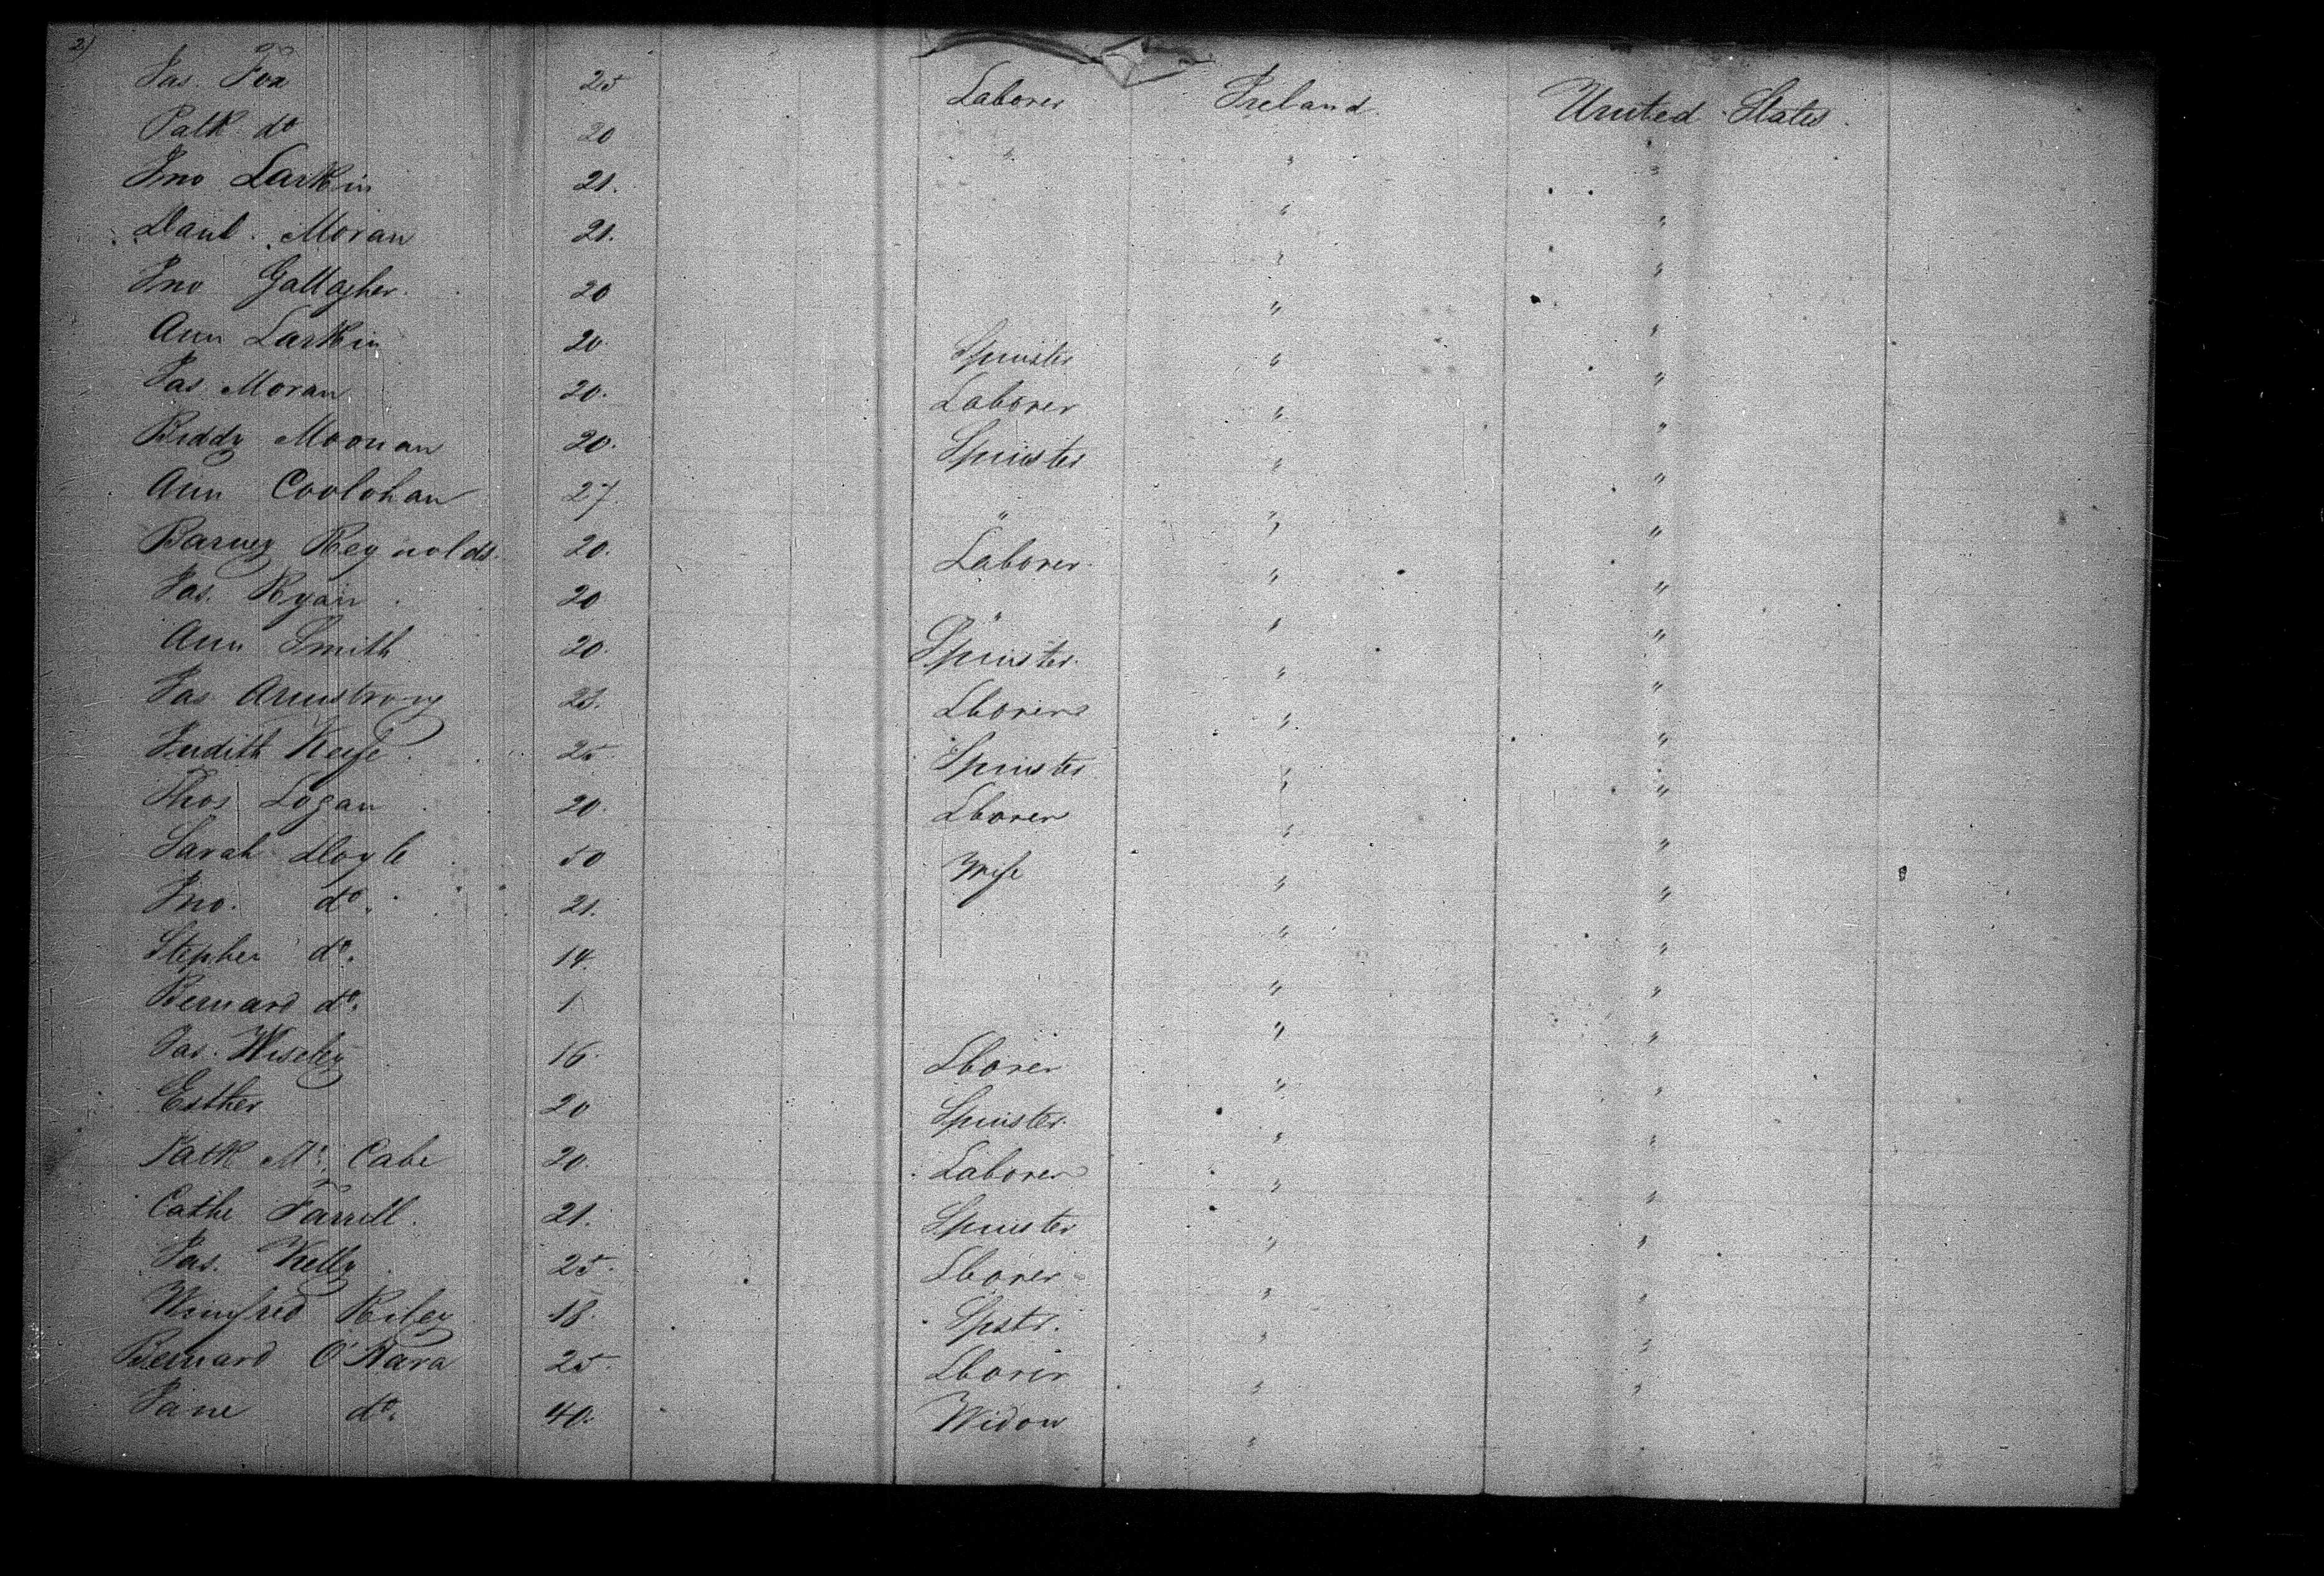 2)
Jas. Fox 25 Laborer Ireland United States.
Patk do 20 " " "
Jno Larkin 21. " "
Danl. Moran 21. " "
Jno Gallagher. 20 " "
Ann Larkin 20 Spinster " "
Jas Moran 20. Laborer " "
Biddy Moonan 20. Spinster " "
Ann Coolohan 27. " " "
Barney Reynolds. 20. Laborer " "
Jas. Ryan 20 " " "
Ann Smith 20. Spinster " "
Jas Armstrong Lborer " "
Judith Keefe 25. Spinster " "
Thos Logan 20. Lborer " "
Sarah Doyle 50 Wife " "
Jno. do. 21. " "
Stephen do. 14. " "
Bernard do. 1 " "
Jas. Wiseley 16. Lborer " "
Esther 20 Spinster " "
Patk Mc. Cabe 20. Laborer " "
Cathe Farrell. 21. Spinster " "
Jas. Kelly 25. Lborer " "
Winifred Riley 18. Spstr. " "
Bernard O'Hara 25. Lborer " "
Jane do. 40. Widow "